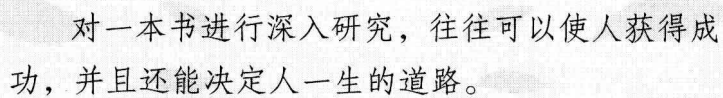 对一本书进行深入研究，往往可以使人获得成
功，并且还能决定人一生的道路。